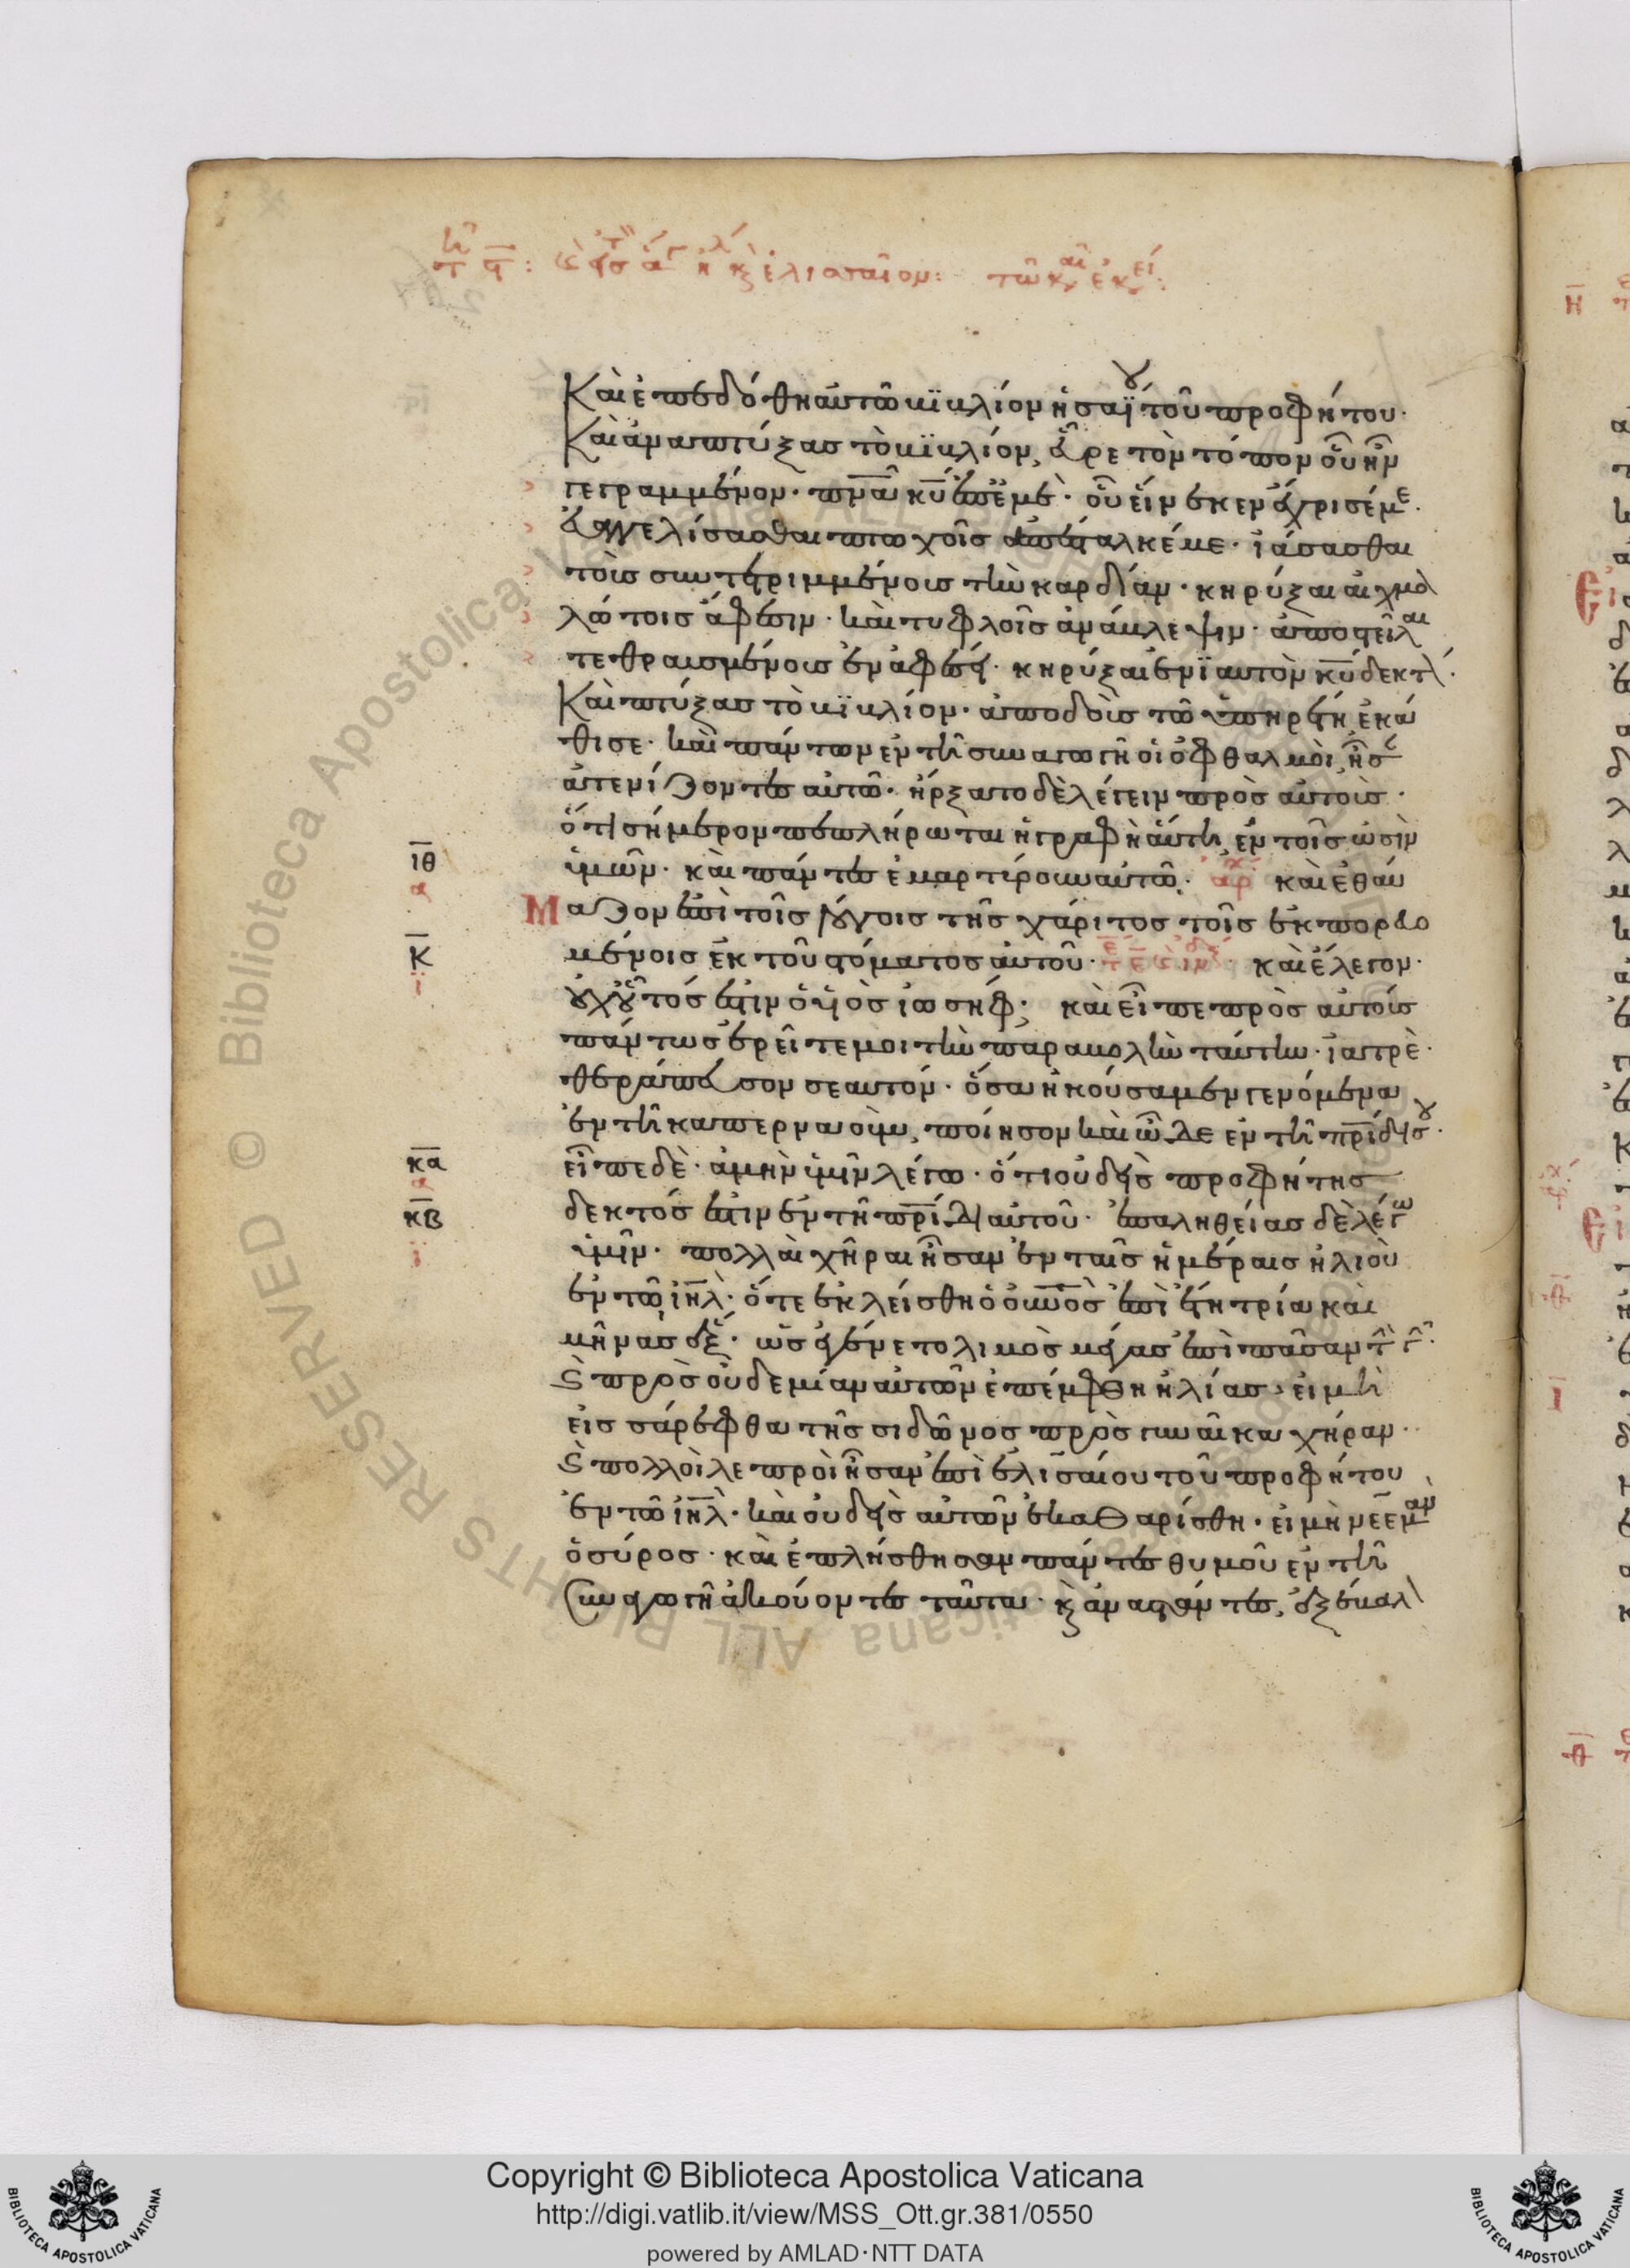 Καὶ ἐπεδόθη αὐτῶ βιβλίον ἡσαΐου τοῦ προφήτου·
Καὶ ἀναπτύξας τὸ βιβλίον, εὗρε τὸν τόπον οὗ ἦν
γεγραμμένον· πνα κυ ἐπ ἐμέ· οὗ εἵνεκεν ἔχρισέ με·
εὐαγγελίσασθαι πτωχοῖς ἀπέσταλκέ με· ἰάσασθαι
τοὺς συντετριμμένους τὴν καρδίαν· κηρύξαι αἰχμα
λώτοις ἄφεσιν· καὶ τυφλοῖς ἀνάβλεψιν· ἀποστεῖλαι
τεθραυσμένους ἐν ἀφέσει· κηρύξαι ἐνϊαυτὸν κυ δεκτ
Καὶ πτύξας τὸ βιβλίον· ἀποδοὺς τῶ ὑπηρέτη, ἐκά
θισε· καὶ πάντων ἐν τῆ συναγωγῆ οἱ ὀφθαλμοὶ, ἦσ
ἀτενίζοντες αὐτῶ· ἤρξατο δὲ λέγειν πρὸς αὐτοὺς·
ὅτι σήμερον πεπλήρωται ἡ γραφὴ αὕτη, ἐν τοῖς ὠσὶν
ὑμῶν· καὶ πάντες ἐμαρτύρουν αὐτῶ· ἀρχ καὶ ἐθαύ
ιθ
α
Μαζον ἐπὶ τοῖς λόγοις τῆς χάριτος τοῖς ἐκπορευο
μένοις ἐκ τοῦ στόματος αὐτοῦ· καὶ ἔλεγον·
κ
ι
οὐχ οὗτός ἐστιν ὁ υἱὸς ἰωσήφ; καὶ εἶπε πρὸς αὐτούς
πάντως ἐρεῖτε μοι τὴν παραβολὴν ταύτην· ἰατρὲ·
θεράπευσον σεαυτόν· ὅσα ἠκούσαμεν γενόμενα
ἐν τῆ καπερναοὺμ, ποίησον καὶ ὧδε ἐν τῆ πρίδι σου·
εἶπε δὲ· ἀμὴν ὑμῖν λέγω· ὅτι οὐδεὶς προφήτης
κα
α
δεκτός ἐστιν ἐν τῆ πρίδι αὐτοῦ· ἐπ αληθείας δὲ λέγω
κβ
ι
ὑμῖν· πολλαὶ χῆραι ἦσαν ἐν ταῖς ἡμέραις ἠλιοὺ
ἐν τῶ ιηλ· ὅτε ἐκλείσθη ὁ οὐνος ἐπὶ ἔτη τρία καὶ
μῆνας ἕξ· ὡς ἐγένετο λιμὸς μέγας ἐπὶ πᾶσαν τ γ·
καὶ πρὸς οὐδεμίαν αὐτῶν ἐπέμφθη ἠλίας, εἰ μὴ
εἰς σάρεφθα τῆς σιδῶνος πρὸς γυναῖκα χήραν·
καὶ πολλοὶ λεπροὶ ἦσαν ἐπὶ ἐλισαίου τοῦ προφήτου
ἐν τῶ ιηλ· καὶ οὐδεὶς αὐτῶν ἐκαθαρίσθη· εἰ μὴ νεεμὰν
ὁ σύρος· καὶ ἐπλήσθησαν πάντες θυμοῦ ἐν τῆ
Συναγωγῆ ἀκούοντες ταῦτα· καὶ ἀναστάντες, ἐξέβαλ
Copyright © Biblioteca Apostolica Vaticana
http://digi.vatlib.it/view/MSS_Ott.gr.381/0550
powered by AMLAD·NTT DATA
BIBLIOTECA APOSTOLICA VATICANA
BIBLIOTECA APOSTOLICA VATICANA